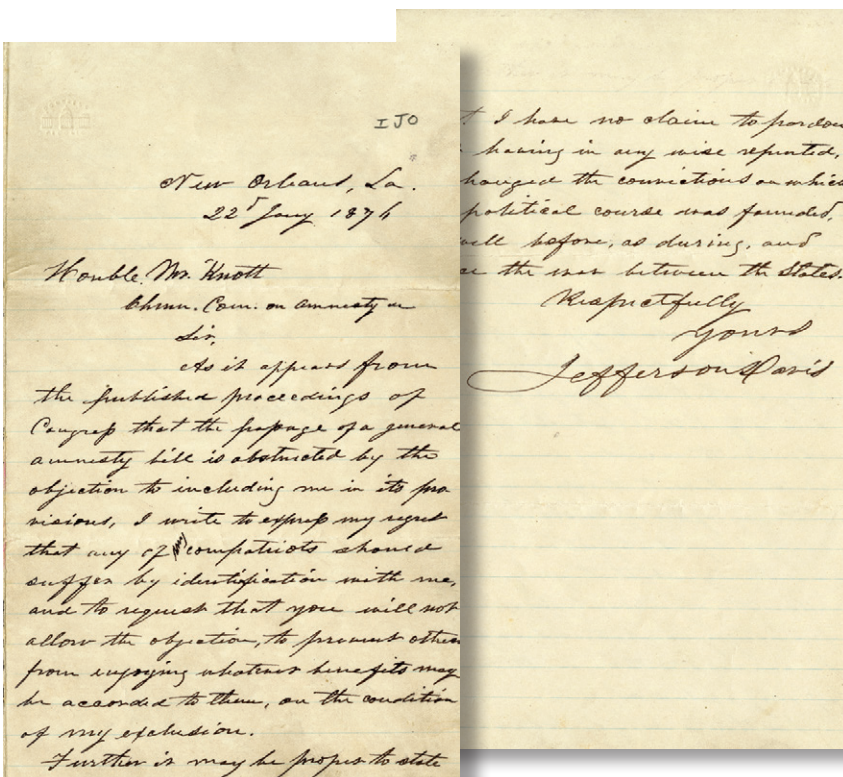 IJO
New Orleans, La.
22d Jany 1876
Honble. Mr. Knott
Chmn. Com. on Amnesty &c
Sir,
As it appears from
the published proceedings of
Congress that the passage of a general
amnesty bill is obstructed by the
objection to including me in its pro
visions, I write to express my regret
that any of my compatriots should
suffer by identification with me,
and to request that you will not
allow the objection, to prevent other
from enjoying whatever benefits may
be accorded to them, on the condition
of my exclusion.
Further it may be proper to state
t I have no claim to pardon
having in any wise repented,
hanged the convictions on which
political course was founded,
well before, as during, and
the war between the States.
Respectfully
Yours
Jefferson Davis